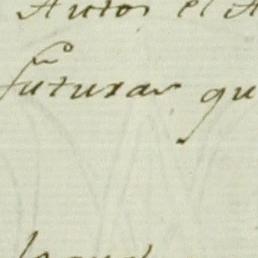 Autos el A
futuras qu